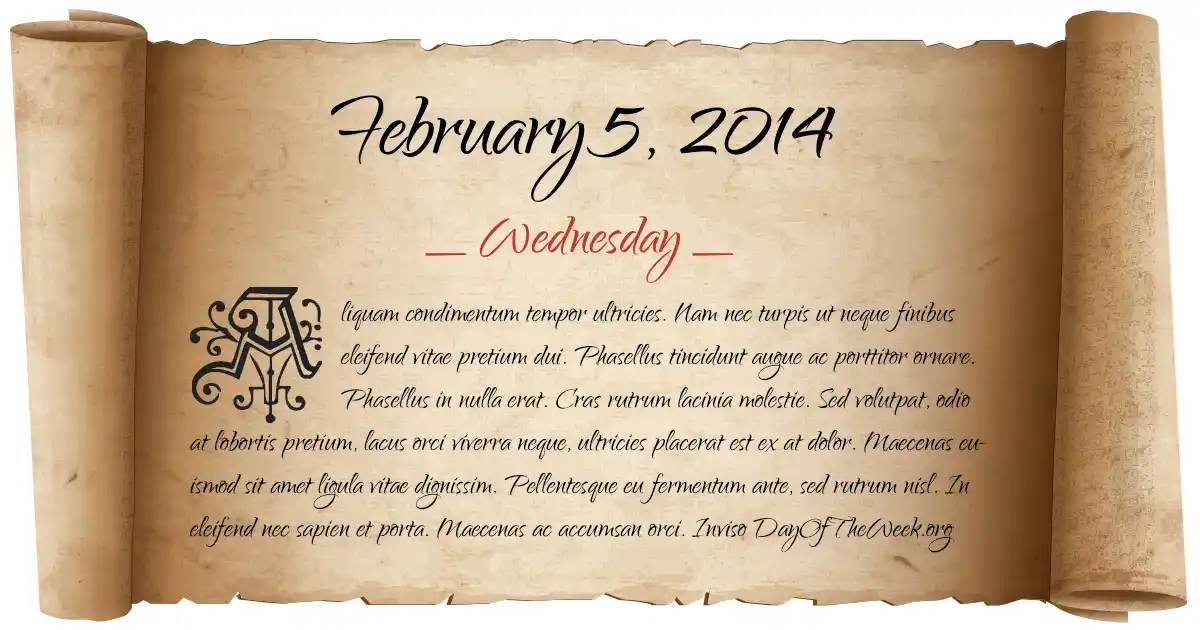 February 5, 2014
— Wednesday —
Aliquam condimentum tempor ultricies. Nam nec turpis ut neque finibus
eleifend vitae pretium dui. Phasellus tincidunt augue ac porttitor ornare.
Phasellus in nulla erat. Cras rutrum lacinia molestie. Sed volutpat, odio
at lobortis pretium, lacus orci viverra neque, ultricies placerat est ex at dolor. Maecenas eu-
ismod sit amet ligula vitae dignissim. Pellentesque eu fermentum ante, sed rutrum nisl. In
eleifend nec sapien et porta. Maecenas ac accumsan orci. Inviso DayOfTheWeek.org